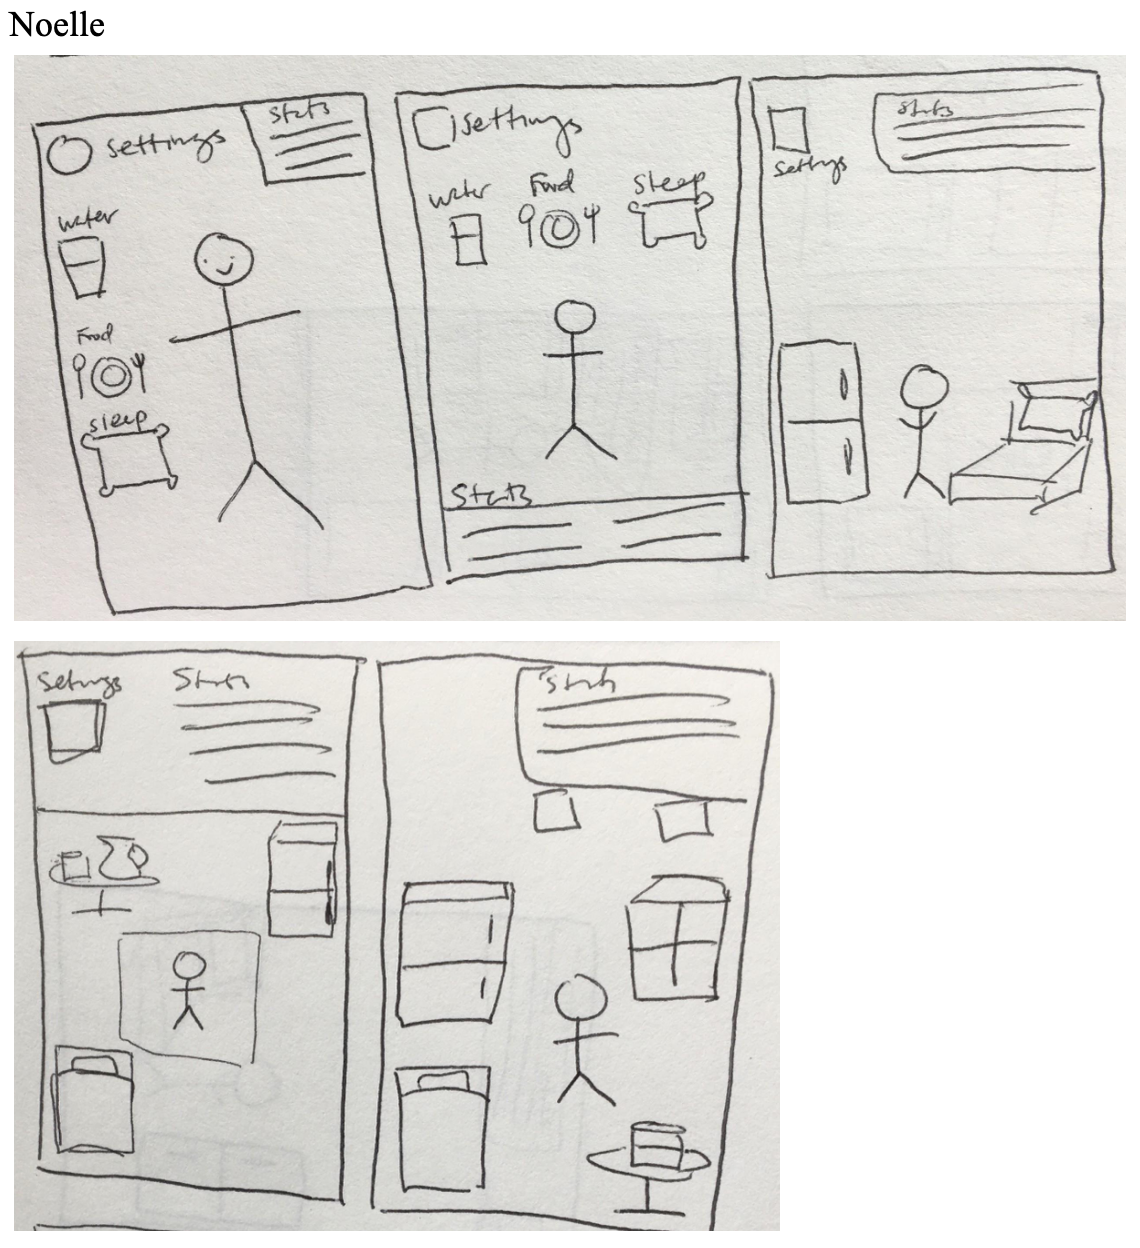 Noelle
settings
Stats
water
Food
sleep
settings
water
Food
Sleep
Stats
Stats
Settings
Settings
Stats
Stats